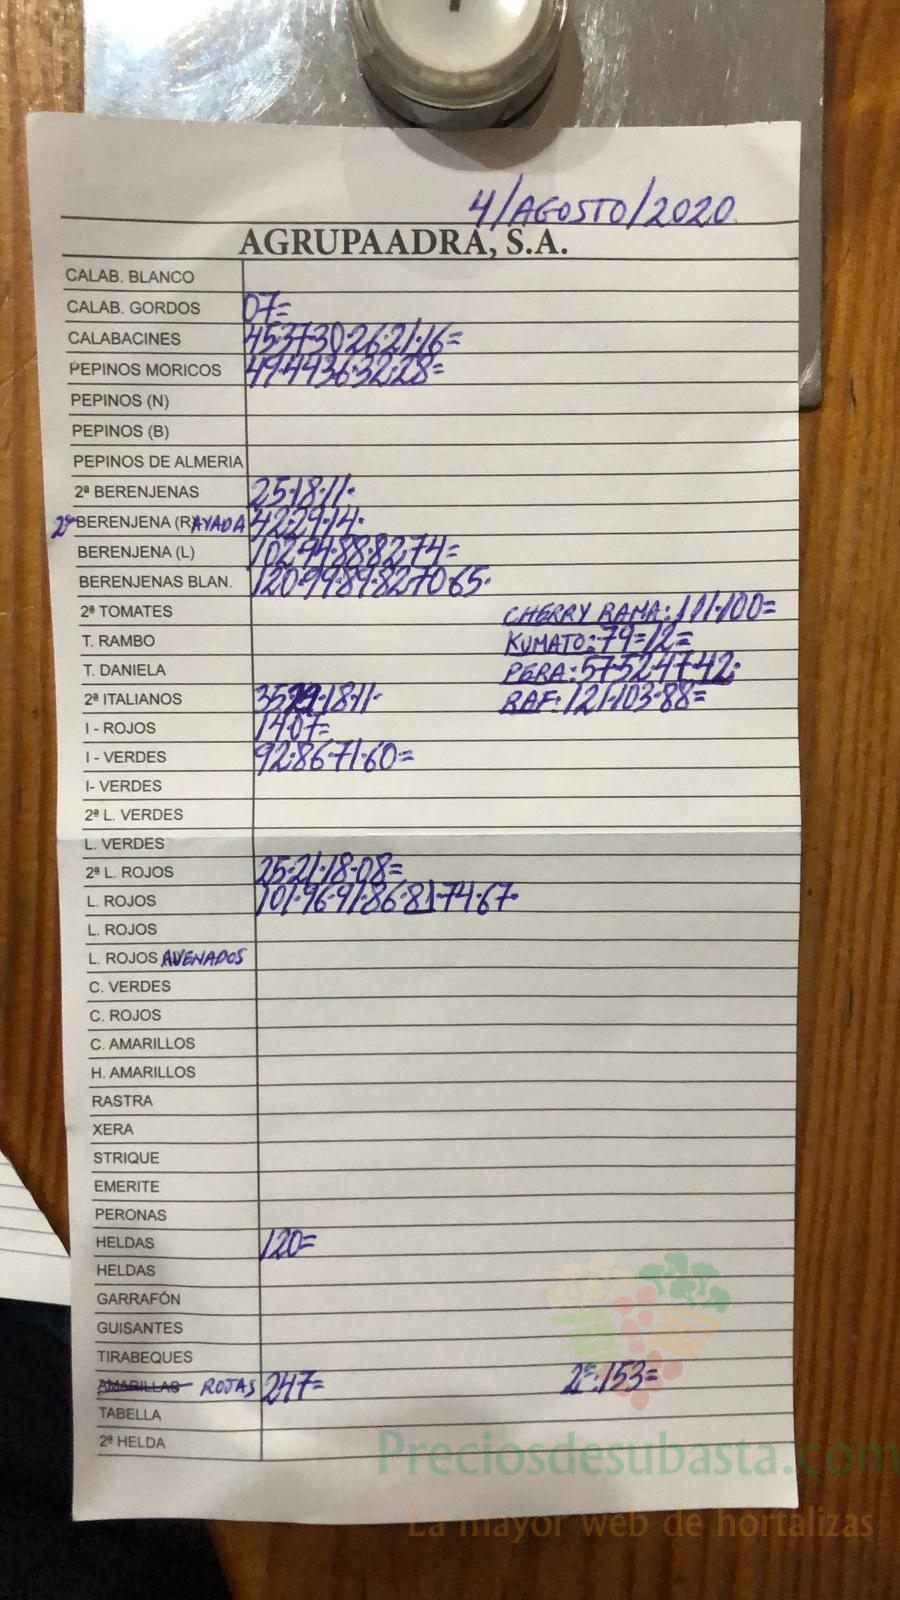 4/AGOSTO/2020
AGRUPAADRA, S.A.
CALAB. BLANCO
CALAB. GORDOS 07=
CALABACINES 45·37·30·26·21·16=
PEPINOS MORICOS 49·44·36·32·28=
PEPINOS (N)
PEPINOS (B)
PEPINOS DE ALMERIA
2ª BERENJENAS 25·18·11·
2ª BERENJENA (RAYADA 42·29·14·
BERENJENA (L) 102·94·88·82·74=
BERENJENAS BLAN. 120·99·89·82·70·65·
2ª TOMATES CHERRY RAMA: 111·100=
T. RAMBO KUMATO: 79=12=
T. DANIELA PERA: 57·52·47·42·
2ª ITALIANOS 35·29·18·11· RAF: 121·103·88=
I - ROJOS 14·07=
I - VERDES 92·86·71·60=
I- VERDES
2ª L. VERDES
L. VERDES
2ª L. ROJOS 25·21·18·08=
L. ROJOS 101·96·91·86·81·74·67·
L. ROJOS
L. ROJOS AVENADOS
C. VERDES
C. ROJOS
C. AMARILLOS
H. AMARILLOS
RASTRA
XERA
STRIQUE
EMERITE
PERONAS
HELDAS 120=
HELDAS
GARRAFÓN
GUISANTES
TIRABEQUES
AMARILLAS ROJAS 247= 2ª:153=
TABELLA
2ª HELDA
Preciosdesubasta.com
La mayor web de hortalizas